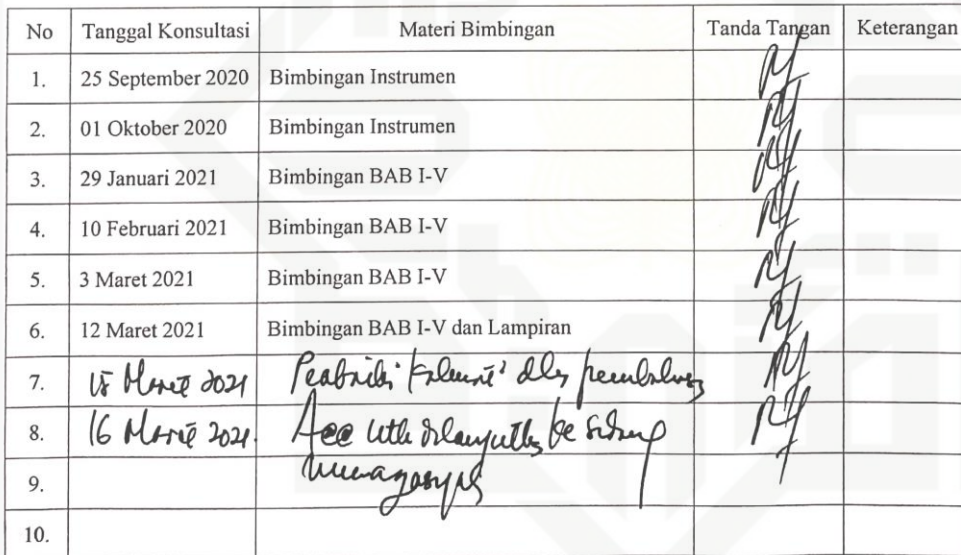 No Tanggal Konsultasi Materi Bimbingan Tanda Tangan Keterangan
1. 25 September 2020 Bimbingan Instrumen
2. 01 Oktober 2020 Bimbingan Instrumen
3. 29 Januari 2021 Bimbingan BAB I-V
4. 10 Februari 2021 Bimbingan BAB I-V
5. 3 Maret 2021 Bimbingan BAB I-V
6. 12 Maret 2021 Bimbingan BAB I-V dan Lampiran
7. 15 Maret 2021
8. 16 Maret 2021. Acc ke sidang
9. munaqasyah
10.